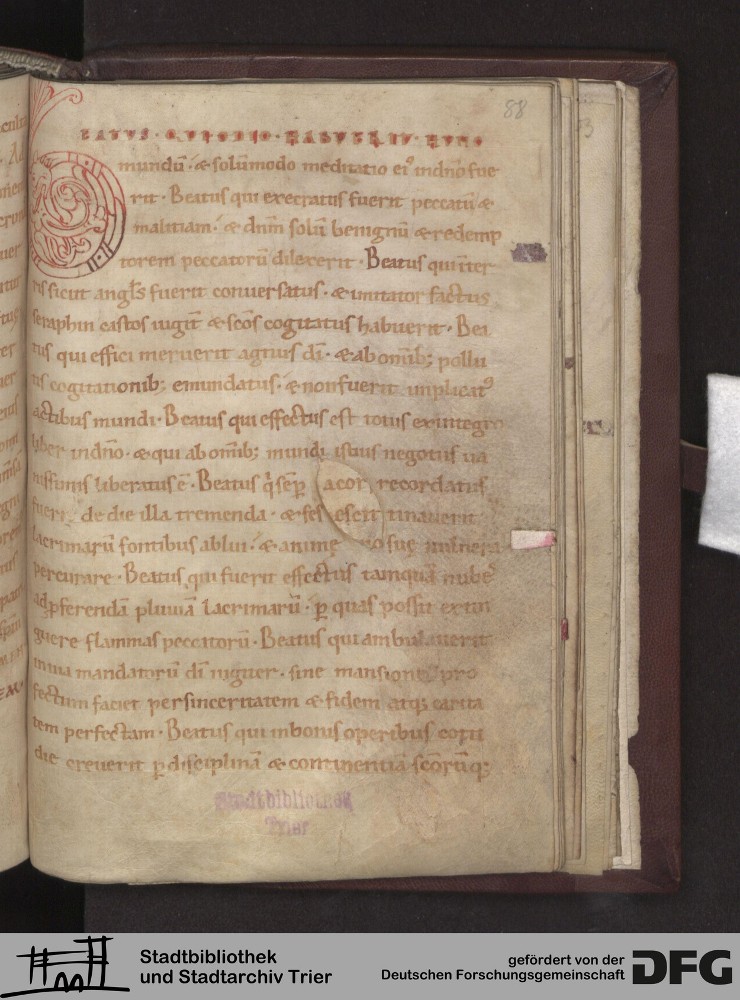 88
BATUS · QUI ODIO · HABUERIT · HUNC
mundū · & solūmodo meditatio ei᾽ in dn̄o fue
rit · Beatus qui execratus fuerit peccatū &
malitiam · & dn̄m solū benignū & redemp
torem peccatorū dilexerit · Beatus qui in ter
ris sicut angl̄s fuerit conversatus · & imitator factus
seraphin castos iugit̄ & sc̄os cogitatus habuerit · Bea
tus qui effici meruerit agnus dī · & ab om̄ib; pollu
tis cogitationib; emundatus · & non fuerit implicat᾽
actibus mundi · Beatus qui effectus est totus ex integro
liber in dn̄o · & qui ab om̄ib; mundi istius negotiis va
nissimis liberatus ē · Beatus q̄ sēp acor recordatus
fuerit de die illa tremenda · & fes estinaverit
lacrimarū fontibus ablui · & animę suę vulnera
percurare · Beatus qui fuerit effectus tamquā nubes
ad ꝓferendā pluviā lacrimarū · p̄ quas possit extin
guere flammas peccatorū · Beatus qui ambulaverit
in via mandatorū dī iugiter · sine mansione pro
fectum faciet per sinceritatem & fidem atq; carita
tem perfectam · Beatus qui in bonis operibus coti
die creverit p̄ disciplinā & continentiā sc̄orūq;
Stadtbibliothek
Trier
Stadtbibliothek
und Stadtarchiv Trier
gefördert von der
Deutschen Forschungsgemeinschaft
DFG